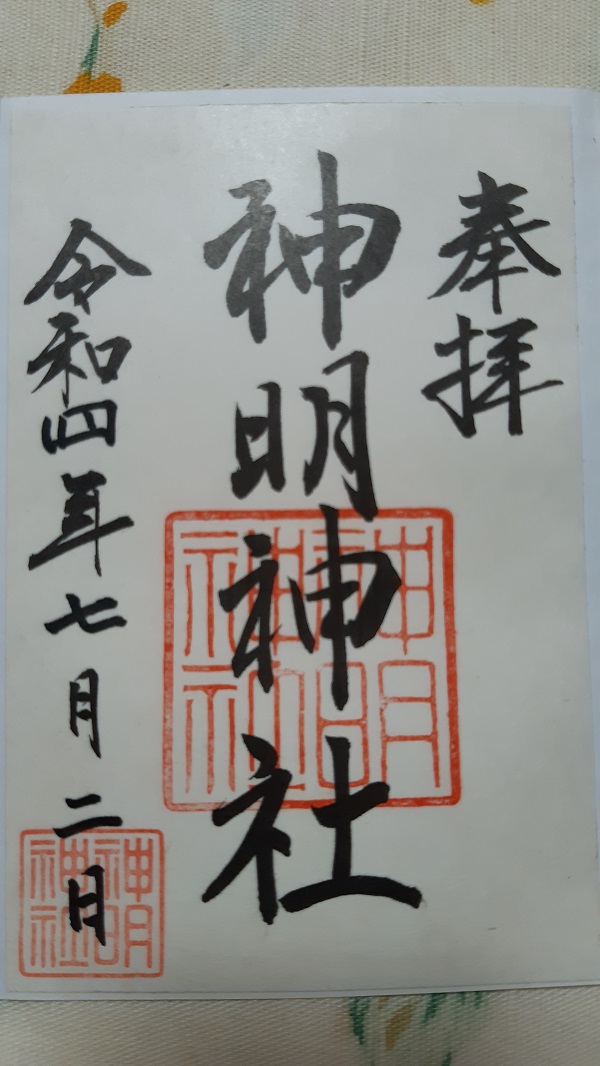 奉拝
神明神社
令和四年七月二日
神明神社
神明神社